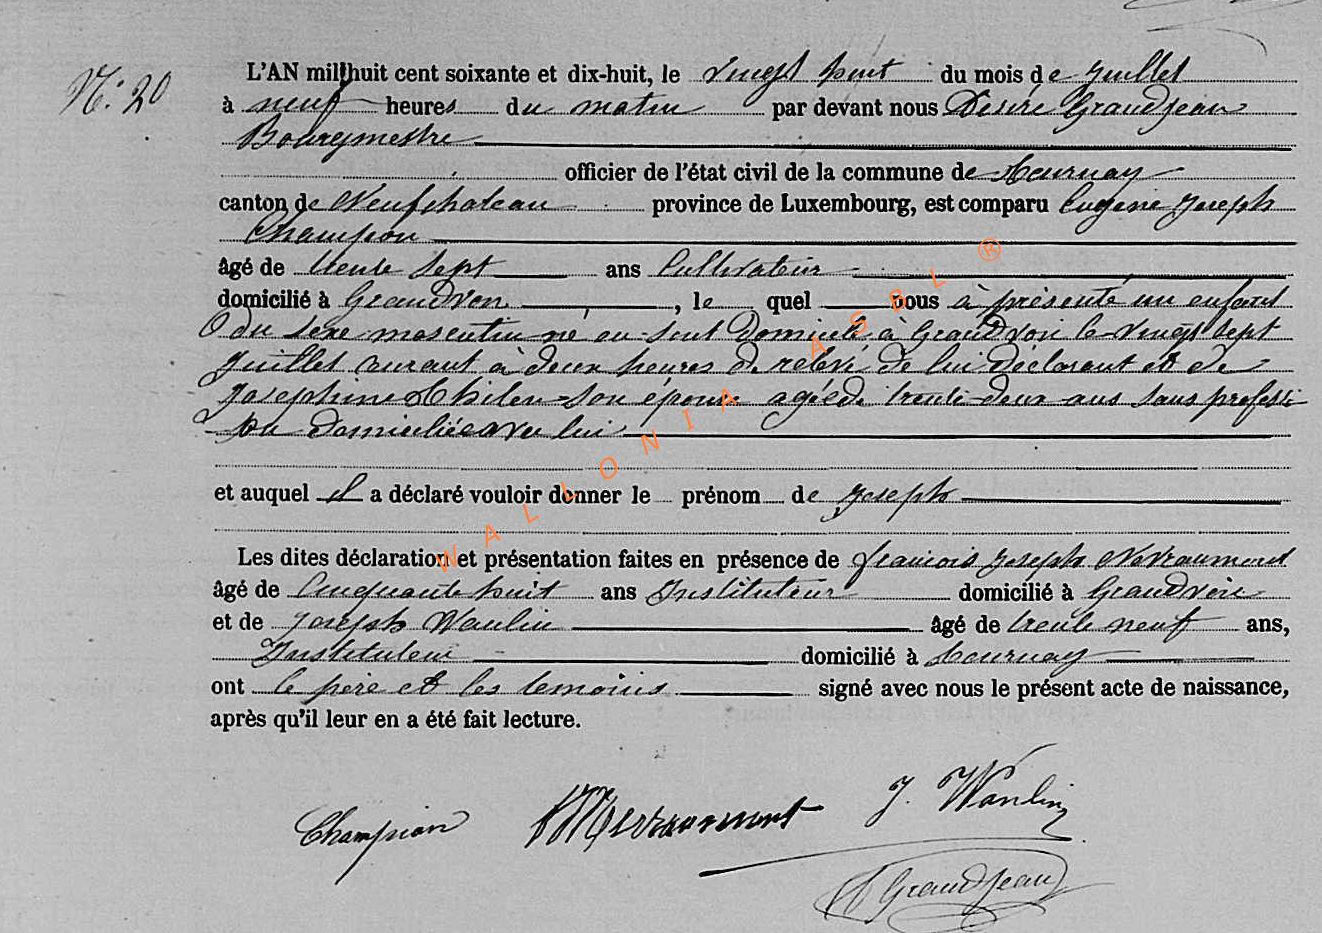 N° 20
L'AN mil huit cent soixante et dix-huit, le vingt huit du mois de Juillet
à neuf heures du matin par devant nous Désiré Grandjean
Bourgmestre
officier de l'état civil de la commune de Tournay
canton de Neufchateau province de Luxembourg, est comparu Eugène Joseph
Champion
âgé de trente sept ans Cultivateur
domicilié à Grandvoir, le quel nous à présenté un enfant
du sexe masculin né en son Domicile à Grandvoir le vingt sept
Juillet courant à deux heures de relevé de lui Déclarant et de
Josephine son épouse agée de trente deux ans sans professi
on domiciliée avec lui
et auquel il a déclaré vouloir donner le prénom de Joseph
Les dites déclaration et présentation faites en présence de François Joseph Nevraumont
âgé de Cinquante huit ans Instituteur domicilié à Grandvoir
et de Joseph Wanlin âgé de trente neuf ans,
Instituteur domicilié à Tournay
ont le père et les temoins signé avec nous le présent acte de naissance,
après qu'il leur en a été fait lecture.
Champion Nevraumont J. Wanlin
D Grandjean
WALLONIA ASBL ®